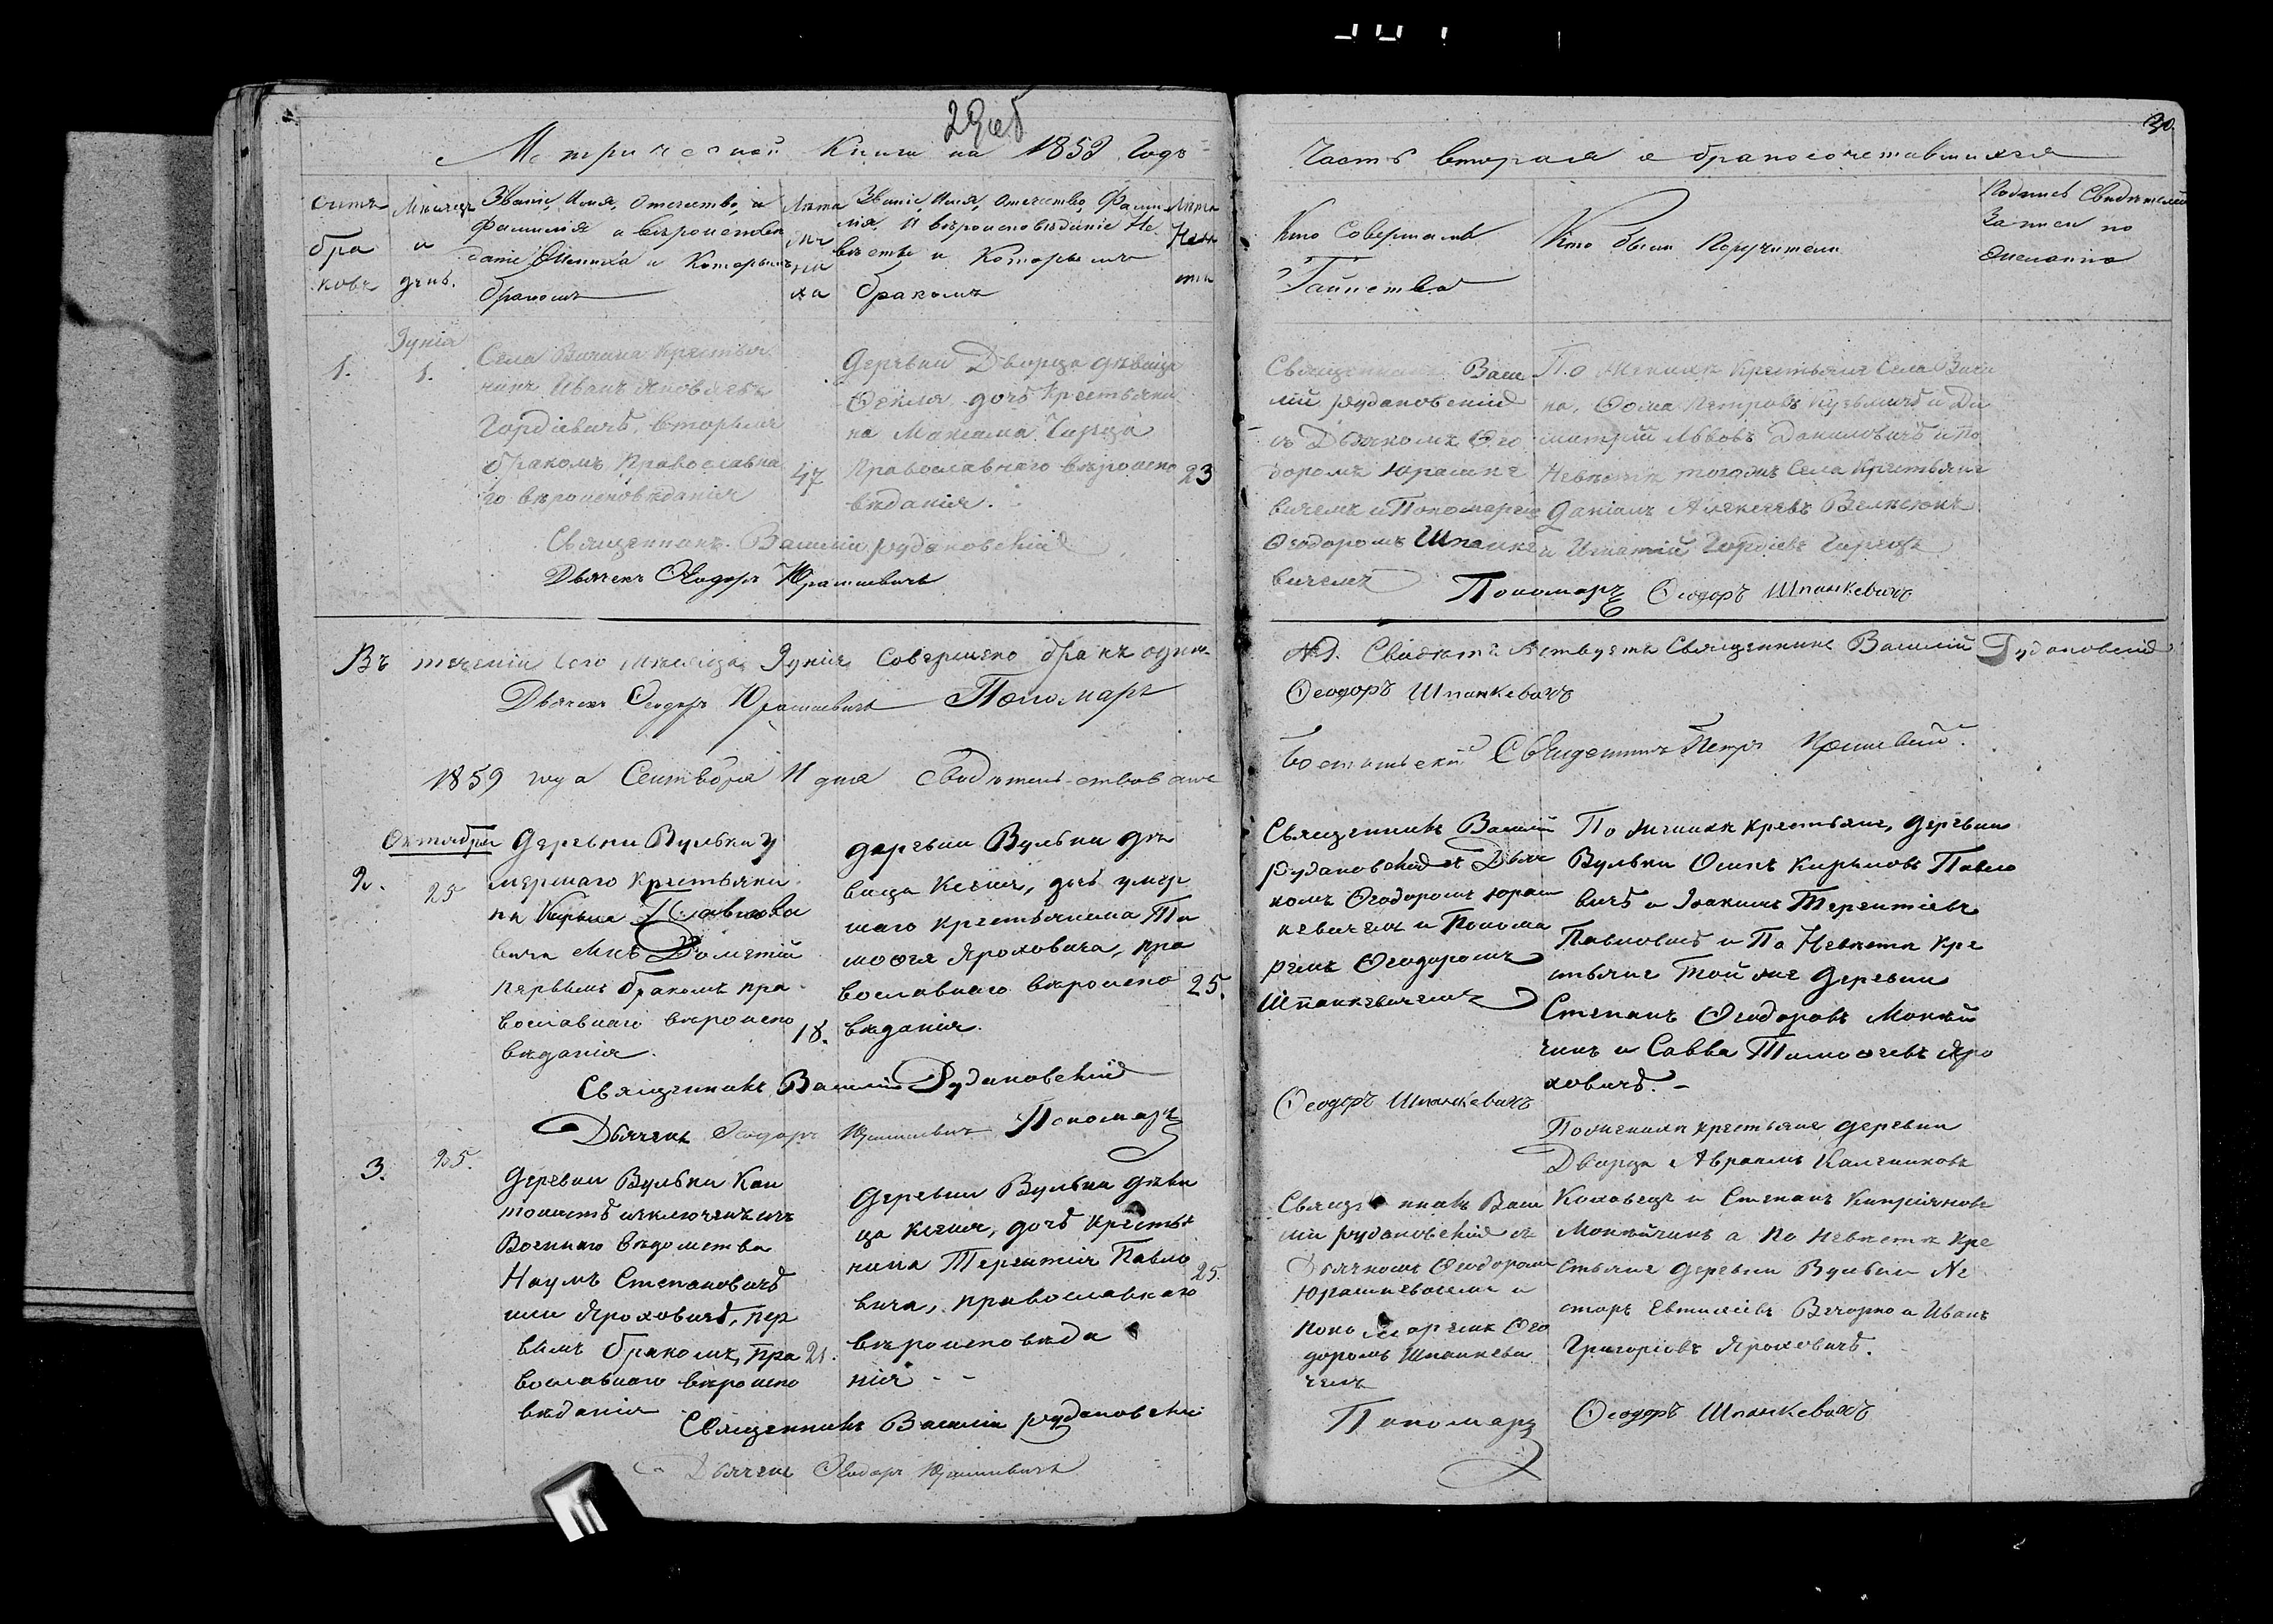 29 об
30.
Метрической Книги на 1859 Годъ
Часть вторая о бракосочетавшихся
Счетъ
бра
ковъ
Мѣсяцъ
и
день.
Званіе, Имя, Отечество, и
Фамилія и вѣроисповѣ
даніе Жениха и Которымъ
бракомъ
Лѣта
же
ни
ха
Званіе Имя, Отечество, Фами
лія, И вѣроисповѣданіе Не
вѣсты и Которымъ
бракомъ
Лѣта
Невѣ
сты
Кто Совершалъ
Таинство
Кто были Поручители
Подпись Свидѣтелей
Записи по
желанію
1.
Іунія
1.
Села Вичина Крестья
нинъ Иванъ Яковлевъ
Гордіевичъ, вторымъ
бракомъ, Православна
го вѣроисповѣданія
47
Деревни Дворца дѣвица
Фекла дочь Крестьяни
на Максима Чирца
Православнаго вѣроиспо
вѣданія.
23
Священникъ Васи
лій Рудановскій
съ Дьячкомъ Ѳео
доромъ Юрашке
вичемъ и Пономаремъ
Ѳеодоромъ Шпанке
вичемъ
По Женихѣ Крестьяне Села Вичи
на, Ѳома Петровъ Кузьмичъ и Ди
митрій Львовъ Даниловичъ и по
Невѣстѣ тогожъ Села Крестьяне
Даніилъ Алексѣевъ Велесюкъ
и Игнатій Гордіевъ Чирецъ
Священникъ Василій Рудановскій
Дьячекъ Ѳеодоръ Юрашкевичъ
Пономарь Ѳеодоръ Шпанкевичъ
Въ теченіи сего мѣсяца Іунія Совершено бракъ одинъ
№1. Свидѣтельствуетъ Священникъ Василій Рудановскій
Дьячекъ Ѳеодоръ Юрашкевичъ Пономарь
Ѳеодоръ Шпанкевичъ
1859 года Сентября 11 дня Свидѣтельствовалъ
Священникъ Петръ
2.
Октября
25
Деревни Вульки у
мершаго Крестьяни
на Кирыла Павлове
вича сынъ Дометій
первымъ бракомъ пра
вославнаго вѣроиспо
вѣданія.
18.
Деревни Вульки дѣ
вица Ксенія, дочь умер
шаго крестьянина Ти
моѳея Яроховича, пра
вославнаго вѣроиспо
вѣданія.
25.
Священникъ Василій
Рудановскій съ Дьяч
комъ Ѳеодоромъ Юраш
кевичемъ и Понома
ремъ Ѳеодоромъ
Шпанкевичемъ
По женихѣ крестьяне, деревни
Вульки Осипъ Кириловъ Павло
вичъ и Іоакимъ Терентіевъ
Павловичъ и По Невѣстѣ кре
стьяне Той же деревни
Степанъ Ѳеодоровъ Мокѣй
чикъ и Савва Тимоѳеевъ Яро
ховичъ. –
Священникъ Василій Рудановскій
Дьячекъ Ѳеодоръ Юрашкевичъ Пономарь
Ѳеодоръ Шпанкевичъ
3.
25.
Деревни Вульки Кан
тонистъ исключенъ изъ
Военнаго вѣдомства
Наумъ Степановичъ
или Яроховичъ, пер
вымъ бракомъ, пра
вославнаго вѣроиспо
вѣданія
21.
Деревни Вульки дѣви
ца Ксенія, дочь крестья
нина Терентія Павло
вича, православнаго
вѣроисповѣда
нія - -
25.
Священникъ Васи
лій Рудановскій съ
Дьячкомъ Ѳеодоромъ
Юрашкевичемъ и
Пономаремъ Ѳео
доромъ Шпанкеви
чемъ
По женихѣ крестьяне деревни
Дворца Авраамъ Калениковъ
Коховецъ и Степанъ Кипріяновъ
Мокѣйчикъ а По невѣстѣ кре
стьяне деревни Вульки Не
сторъ Евтихіевъ Вечорко и Иванъ
Григоріевъ Яроховичъ.
Священникъ Василій Рудановскій
Дьячекъ Ѳеодоръ Юрашкевичъ
Пономарь Ѳеодоръ Шпанкевичъ